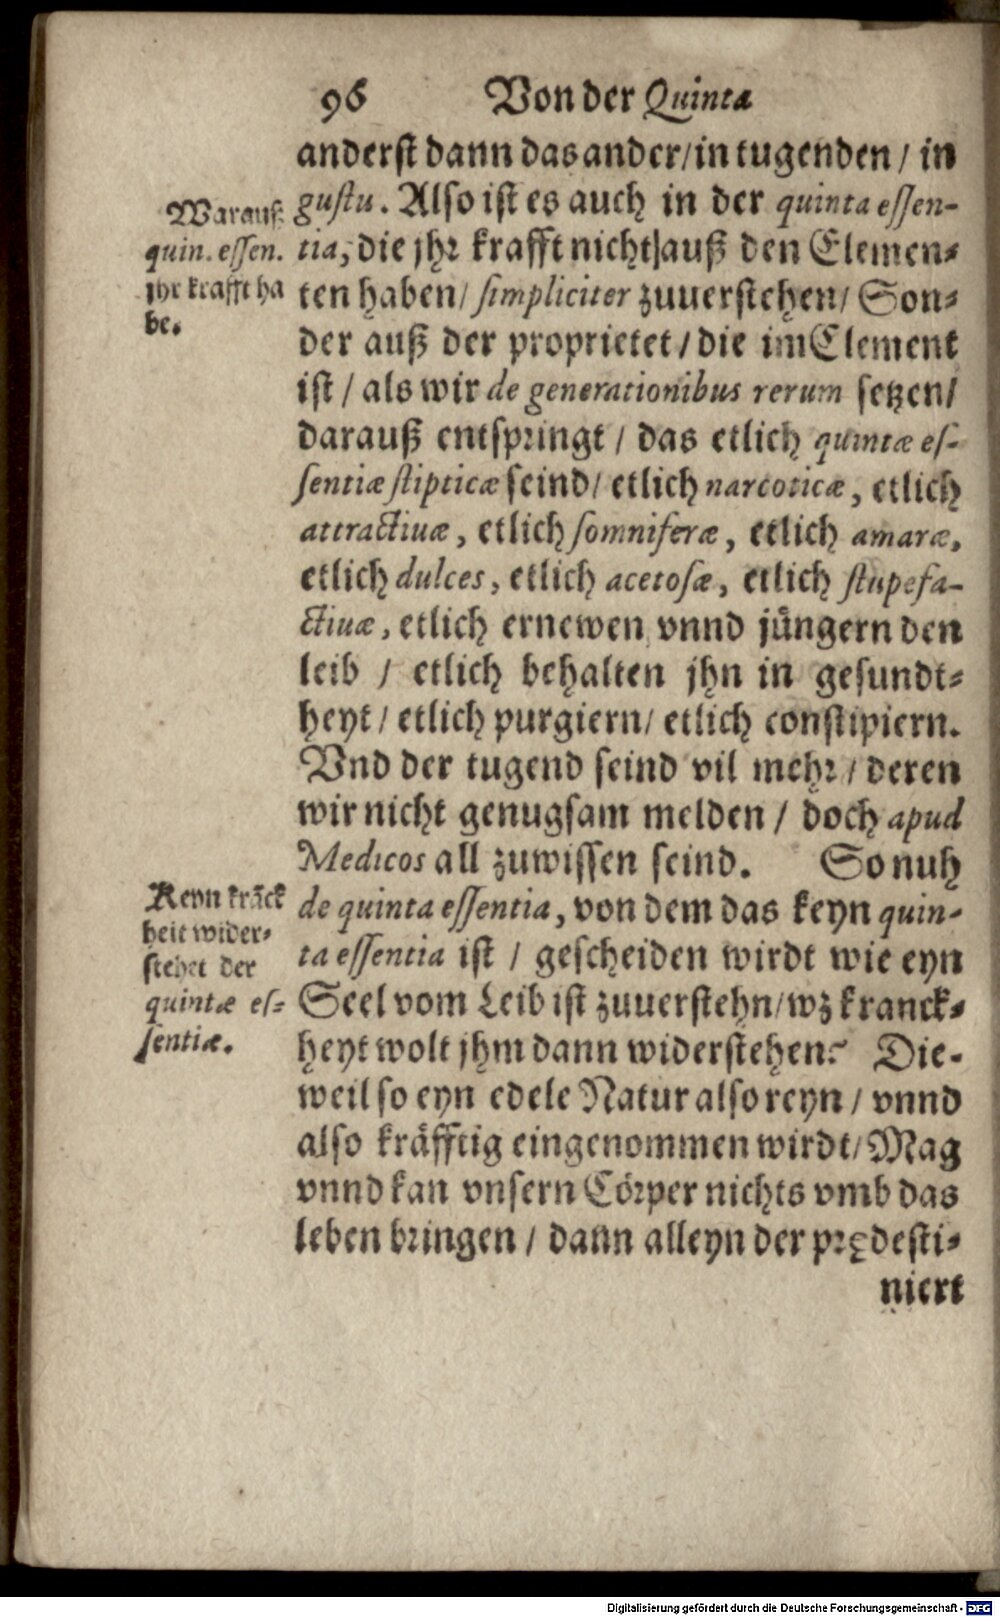 96 Von der Quinta
anderst dann das ander / in tugenden / in
gustu. Also ist es auch in der quinta essen-
tia, die jhr krafft nicht auß den Elemen-
ten haben / simpliciter zuuerstehen / Son-
der auß der proprietet / die im Element
ist / als wir de generationibus rerum setzen /
darauß entspringt / das etlich quintæ es-
sentiæ stipticæ seind / etlich narcoticæ, etlich
attractiuæ, etlich somniferæ, etlich amaræ,
etlich dulces, etlich acetosæ, etlich stupefa-
ctiuæ, etlich ernewen vnnd jüngern den
leib / etlich behalten jhn in gesundt-
heyt / etlich purgiern / etlich constipiern.
Vnd der tugend seind vil mehr / deren
wir nicht genugsam melden / doch apud
Medicos all zuwissen seind. So nuh
de quinta essentia, von dem das keyn quin-
ta essentia ist / gescheiden wirdt wie eyn
Seel vom Leib ist zuuerstehn / wz kranck-
heyt wolt jhm dann widerstehen? Die-
weil so eyn edele Natur also reyn / vnnd
also kräfftig eingenommen wirdt / Mag
vnnd kan vnsern Cörper nichts vmb das
leben bringen / dann alleyn der prędesti-
niert
Warauß
quin. essen.
jhr krafft ha
be.
Keyn krāck
heit wider-
stehet der
quintæ es-
sentiæ.
Digitalisierung gefördert durch die Deutsche Forschungsgemeinschaft - DFG